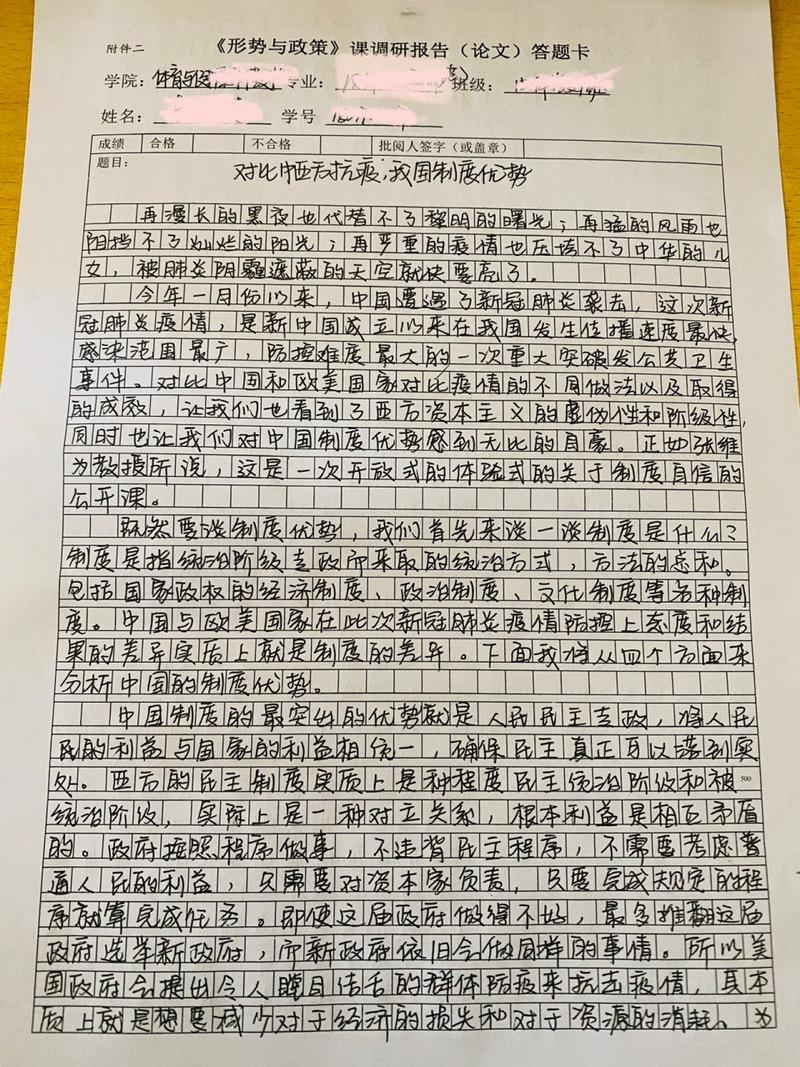 附件二
《形势与政策》课调研报告（论文）答题卡
学院：体育与 专业： 班级：
姓名： 学号
成绩 合格 不合格 批阅人签字（或盖章）
题目：
对比中西方抗疫，我国制度优势
再漫长的黑夜也代替不了黎明的曙光；再猛的风雨也
阻挡不了灿烂的阳光；再严重的疫情也压垮不了中华的儿
女，被肺炎阴霾遮蔽的天空就快要亮了。
今年一月份以来，中国遭遇了新冠肺炎袭击，这次新
冠肺炎疫情，是新中国成立以来在我国发生传播速度最快，
感染范围最广，防控难度最大的一次重大突破发公共卫生
事件。对比中国和欧美国家对比疫情的不同做法以及取得
的成效，让我们也看到了西方资本主义的虚伪性和阶级性，
同时也让我们对中国制度优势感到无比的自豪。正如张维
为教授所说，这是一次开放式的体验式的关于制度自信的
公开课。
既然要谈制度优势，我们首先来谈一谈制度是什么？
制度是指统治阶级专政而采取的统治方式，方法的总和。
包括国家政权的经济制度、政治制度、文化制度等各种制
度。中国与欧美国家在此次新冠肺炎疫情防控上态度和结
果的差异实质上就是制度的差异。下面我将从四个方面来
分析中国的制度优势。
中国制度的最突出的优势就是人民民主专政，将人民
民的利益与国家的利益相统一，确保民主真正可以落到实
处。西方的民主制度实质上是种程度民主统治阶级和被
500
统治阶级，实际上是一种对立关系，根本利益是相互矛盾
的。政府按照程序做事，不违背民主程序，不需要考虑普
通人民的利益，只需要对资本家负责，只要完成规定的程
序就算完成任务。即使这届政府做得不好，最多推翻这届
政府选举新政府，而新政府依旧会做同样的事情。所以美
国政府会提出令人瞠目结舌的群体防疫来抗击疫情，其本
质上就是想要减少对于经济的损失和对于资源的消耗。为